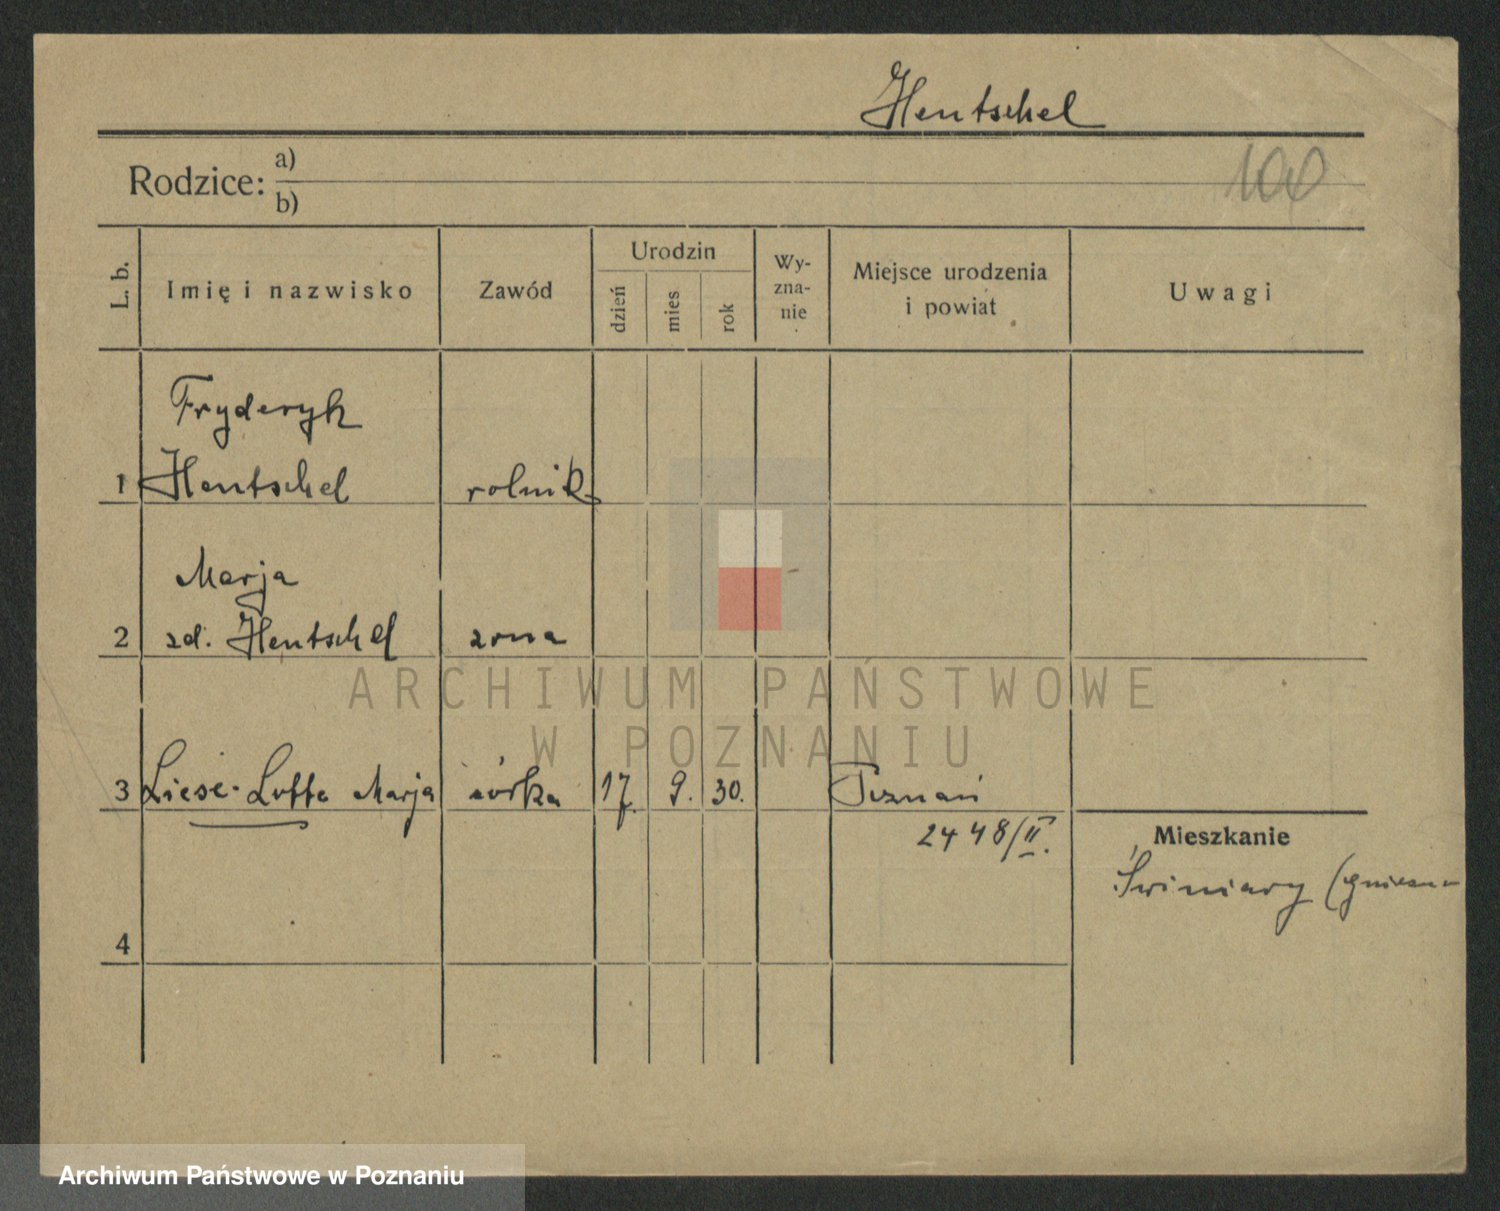 Hentschel
100
Rodzice: a)
b)
L. b.
Imię i nazwisko
Zawód
Urodzin
dzień
mies
rok
Wy-
zna-
nie
Miejsce urodzenia
i powiat
Uwagi
Fryderyk
1 Hentschel rolnik
Marja
2 zd. Hentschel żona
3 Liese-Lotte Marja córka 17. 9. 30. Poznań
2448/II.
Mieszkanie
Świniary (gniezn
4
ARCHIWUM PAŃSTWOWE
W POZNANIU
Archiwum Państwowe w Poznaniu